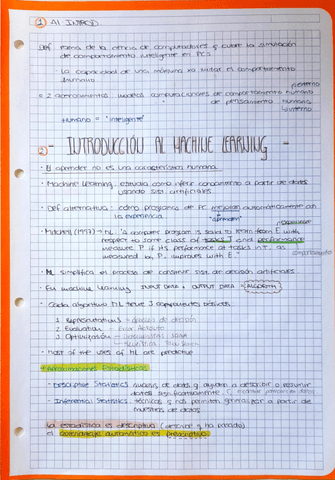 ① AI INTROD.
Def rama de la ciencia de computadores q cubre la simulación
de comportamiento inteligente en PCs
· la capacidad de una máquina xa imitar el comportamiento
humano
externo
2 acercamientos modelos computacionales de comportamiento humano
de pensamiento humano
interno
Humano = "inteligente"
② - INTRODUCCIÓN AL MACHINE LEARNING -
· El aprender no es una característica humana.
· Machine Learning, estudia cómo inferir conocimiento a partir de datos
usando sist. artificiales.
· Def alternativa: cómo programas de PC mejoran automáticamente con
la experiencia. "aprenden"
experiencia
· Mitchell (1997) → ML "A computer program is said to learn from E with
respect to some class of tasks T and performance
measure P if its performance at tasks in T, as
measured by P, improves with E".
· ML simplifica el proceso de construir sist. de decisión artificiales.
· En machine learning INPUT DATA + OUTPUT DATA = ALGORITHM
· Cada algoritmo ML tiene 3 componentes básicos:
1 Representation
2 Evaluation - Error Absoluto
3 Optimización
· Most of the uses of ML are predictive
· Descriptive Statistics análisis de datos q ayudan a describir o resumir
datos significativamente.
· Inferential Statistics técnicas q nos permiten generalizar a partir de
muestras de datos
la estadística es descriptiva (describir q ha pasado)
el aprendizaje automático es predictivo